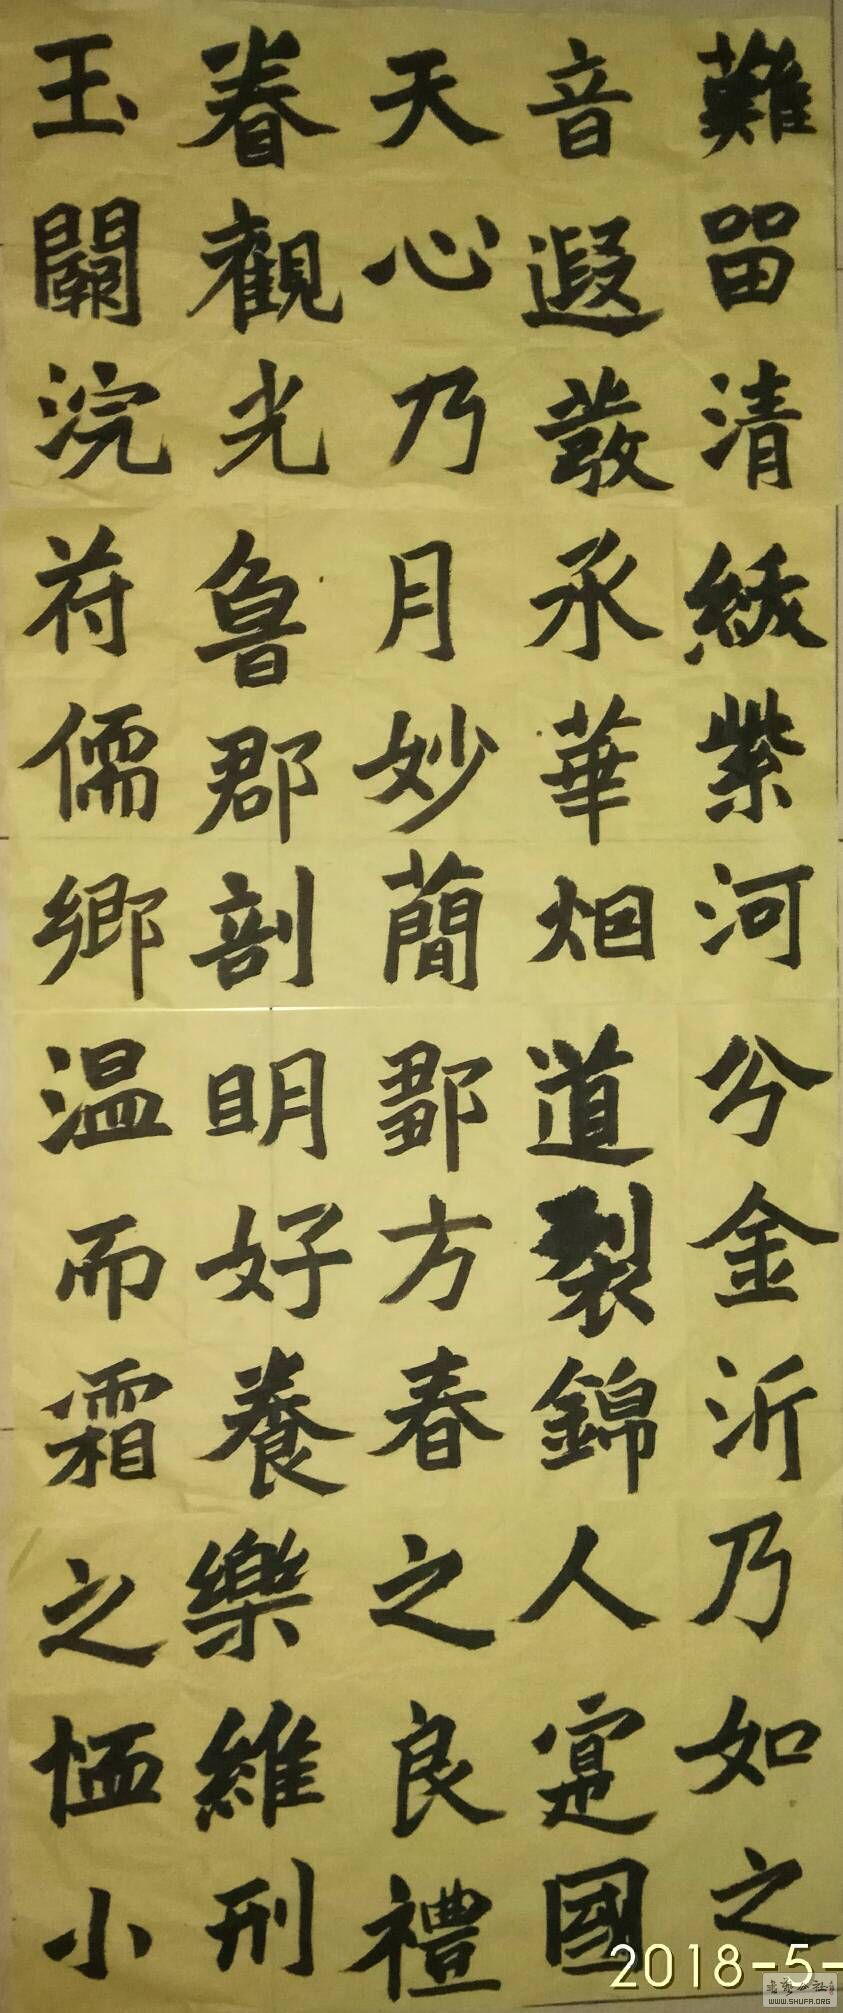 難留清
音遐發
天心乃
眷觀光
玉闕浣
紱紫河
承華烟
月妙簡
魯郡剖
苻儒鄉
分金沂
道裂錦
鄒方春
明好養
温而霜
乃如之
人寔國
之良禮
樂維刑
之恤小
2018-5-
WWW.SHUFA.ORG